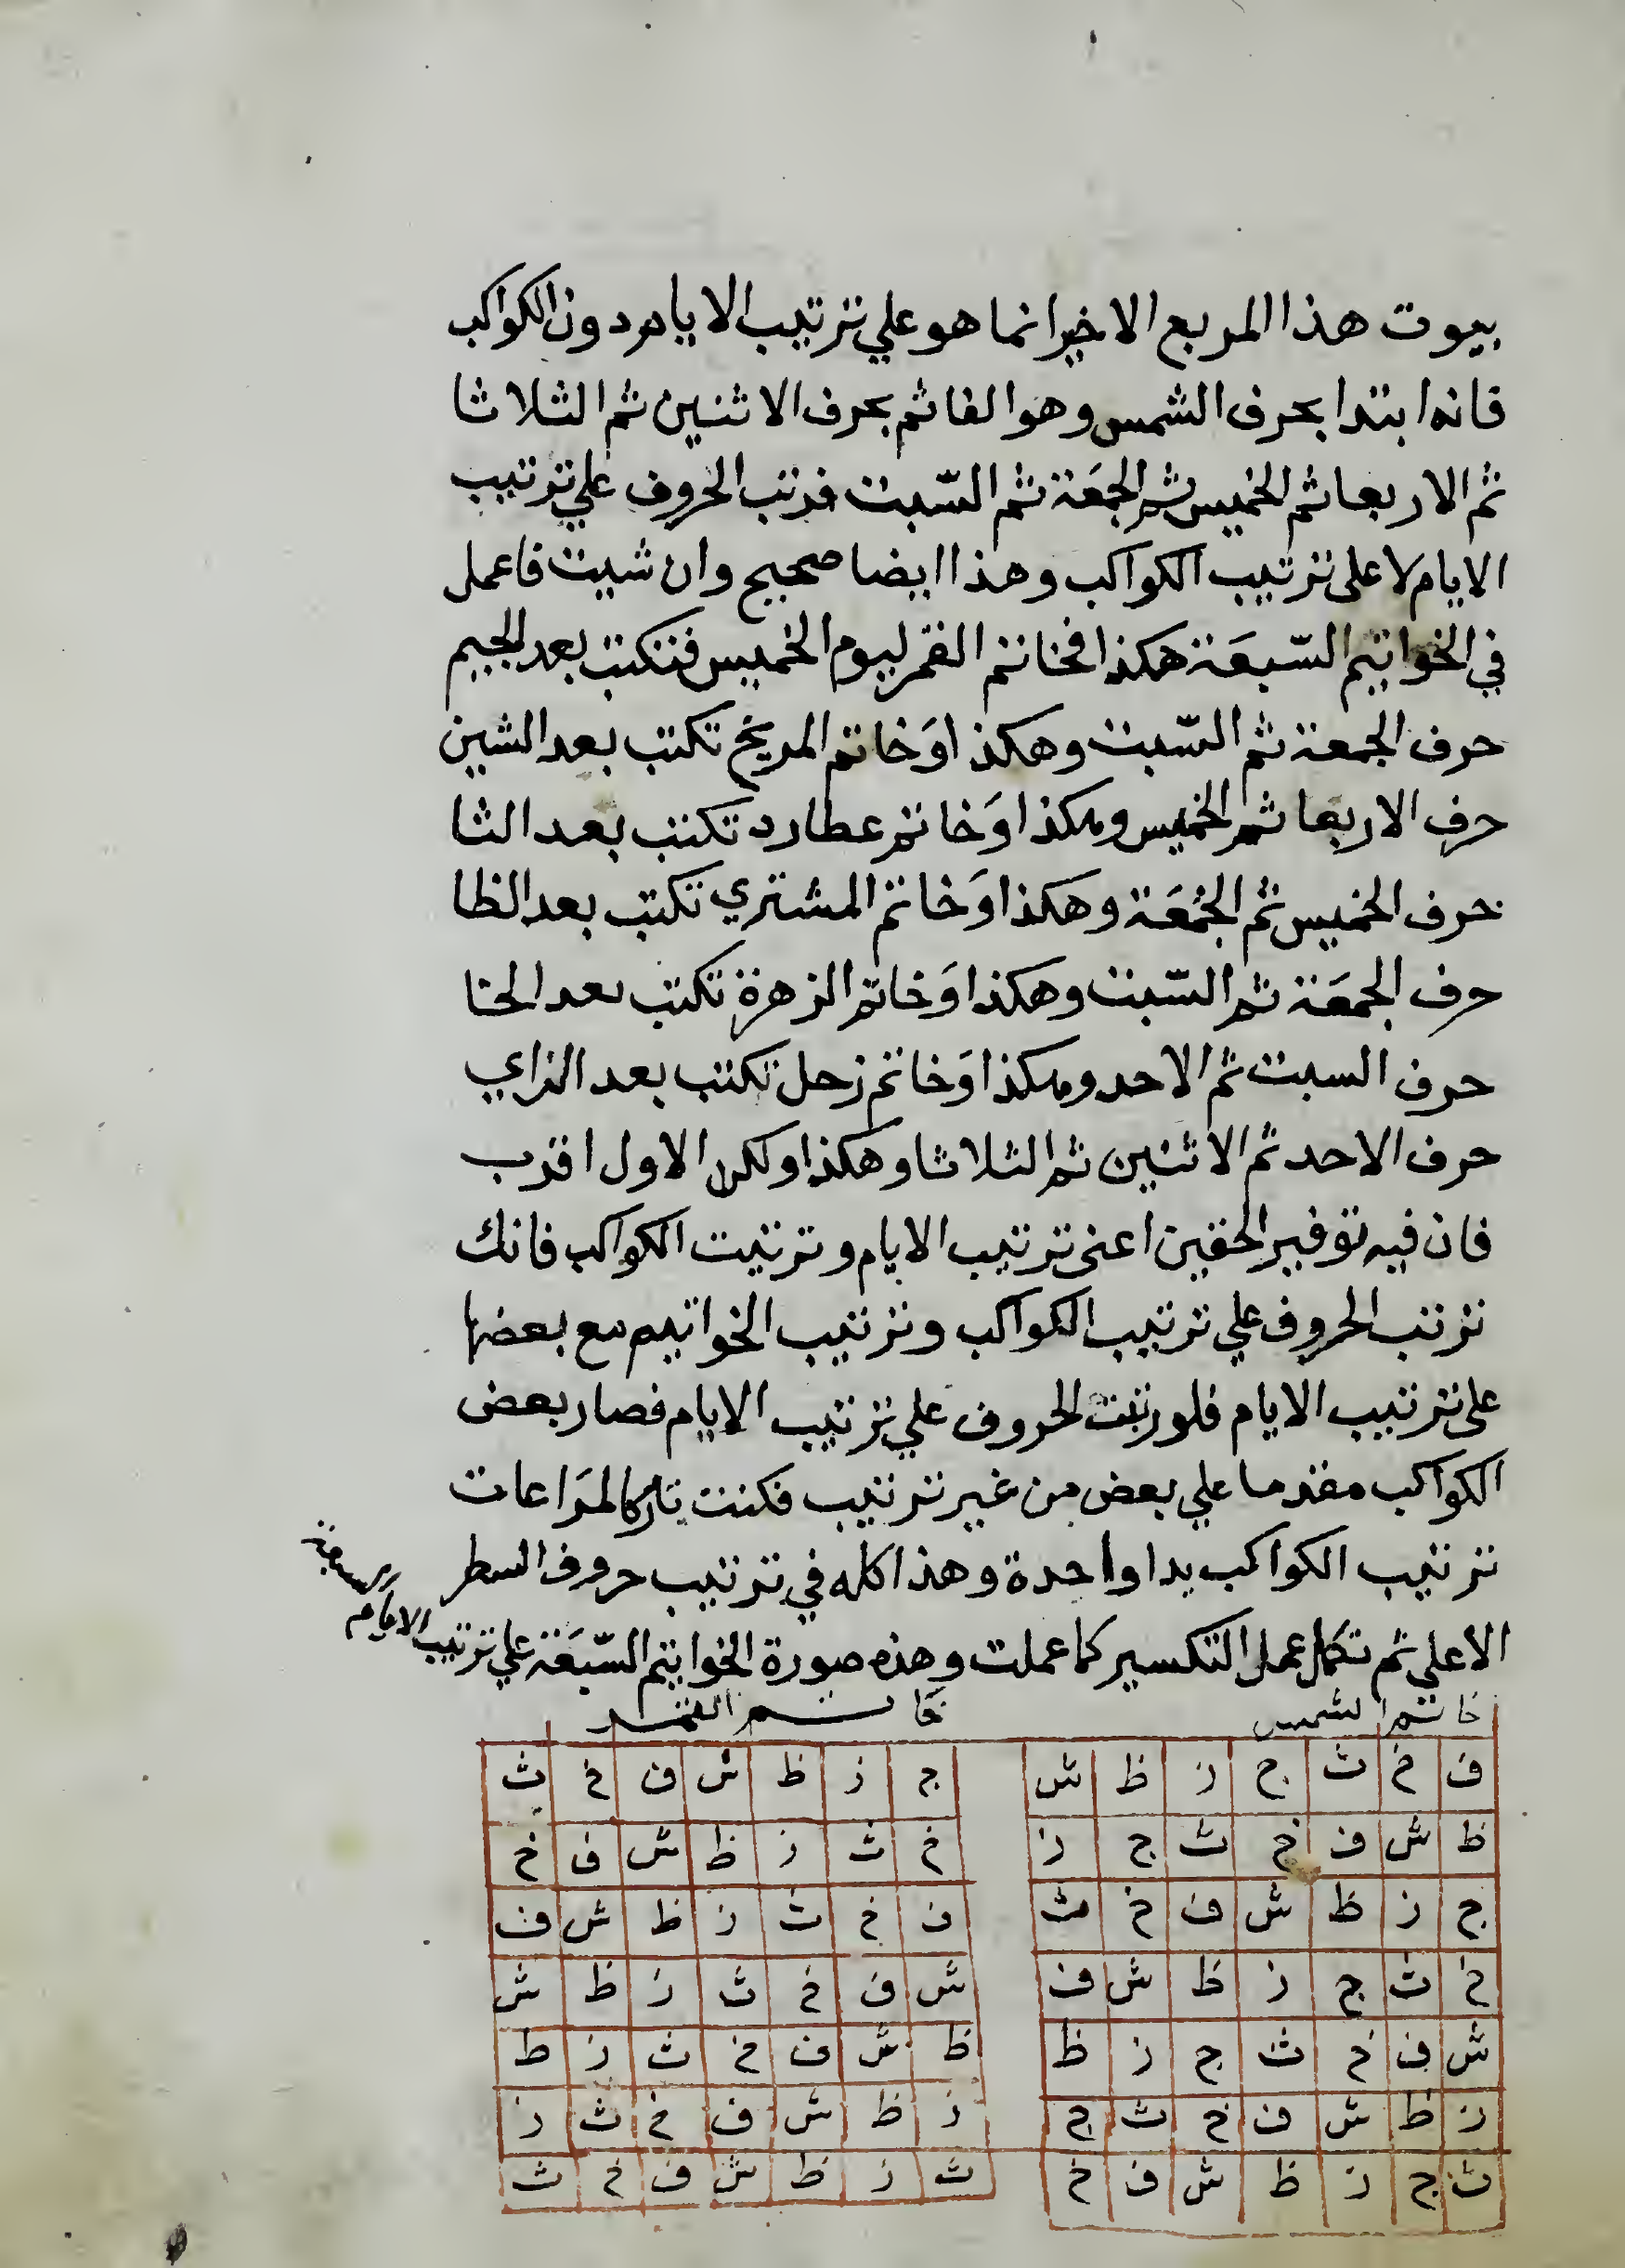 بيوت هذا المربع الاخير انما هو علي ترتيب الايام دون الكواكب
فانه ابتدا بحرف الشمس وهو الفا ثم بحرف الاثنين ثم الثلاثا
ثم الاربعا ثم الخميس ثم الجمعَة ثم السّبت فرتب الحروف علي ترتيب
الايام لا على ترتيب الكواكب وهذا ايضا صحيح وان شيت فاعمل
في الخواتيم السّبعَة هكذا فخاتم القمر ليوم الخميس فتكتب بعد الجيم
حرف الجمعة ثم السّبت وهكذا وَخاتم المريخ تكتب بعد الشين
حرف الاربعا ثم الخميس وهكذا وَخاتم عطارد تكتب بعد الثا
حرف الخميس ثم الجُمُعَة وهكذا وَخاتم المشتري تكتب بعد الظا
حرف الجمعَة ثم السّبت وهكذا وَخاتم الزهرة تكتب بعد الخا
حرف السبت ثم الاحد وهكذا وَخاتم زحل تكتب بعد الزاي
حرف الاحد ثم الاثنين ثم الثلاثا وهكذا ولكن الاول اقرب
فان فيه توفير الحقين اعنى ترتيب الايام وترتيت الكواكب فانك
ترتب الحروف علي ترتيب الكواكب وترتيب الخواتيم مع بعضها
على ترتيب الايام فلو رتبت الحروف علي ترتيب الايام فصار بعض
الكواكب مقدما علي بعض من غير ترتيب فكنت تاركا لمرَاعات
ترتيب الكواكب يدا واحدة وهذا كله في ترتيب حروف السطر
الاعلي ثم تكمل عمل التكسير كما عملت وهذه صورة الخواتيم السّبعَة علي ترتيب الايام السبعة
خاتم الشمس خاتم القمر
ف خ ث ج ز ظ ش ج ز ظ ش ف خ ث
ظ ش ف خ ث ج ز خ ث ز ظ ش ف خ
ج ز ظ ش ف خ ث ف خ ث ز ظ ش ف
خ ث ج ز ظ ش ف ش ف خ ث ز ظ ش
ش ف خ ث ج ز ظ ظ ش ف خ ث ز ظ
ز ظ ش ف خ ث ج ز ظ ش ف خ ث ز
ث ج ز ظ ش ف خ ث ز ظ ش ف خ ث